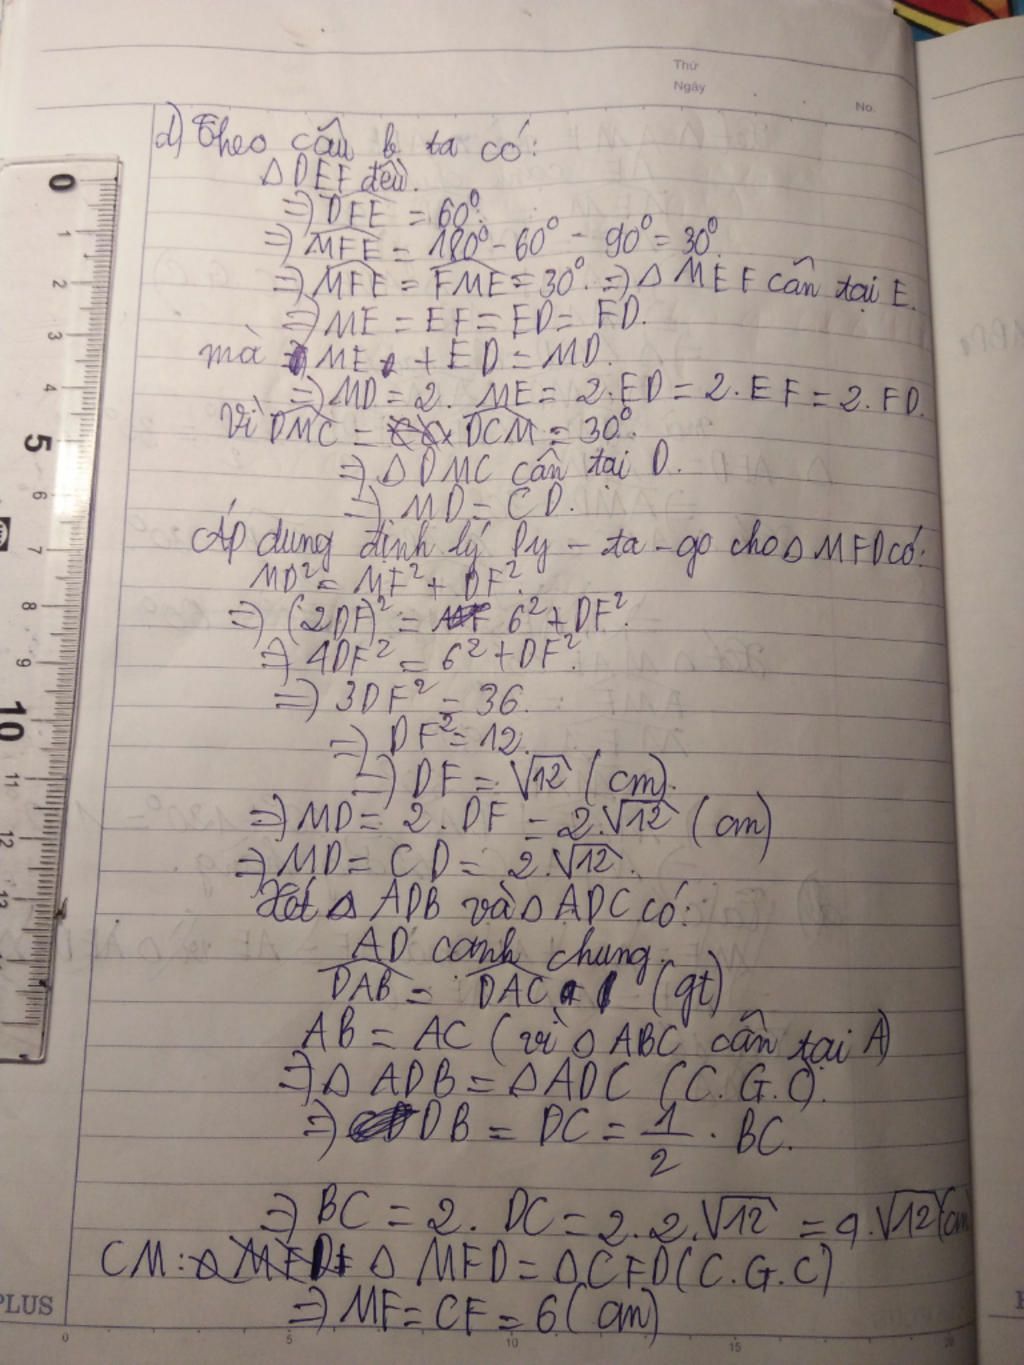 Thứ
Ngày
No.
d) Theo câu b ta có:
△DEF đều.
=> DFE = 60°.
=> MFE = 180° - 60° - 90° = 30°.
=> MFE = FME = 30°. => △MEF cân tại E.
=> ME = EF = ED = FD.
mà ME + ED = MD.
=> MD = 2. ME = 2.ED = 2.EF = 2.FD.
Vì DMC = DCM = 30°.
=> △DMC cân tại D.
=> MD = CD.
Áp dụng định lý Py-ta-go cho △MFD có:
MD² = MF² + DF².
=> (2DF)² = 6² + DF².
=> 4DF² = 6² + DF².
=> 3DF² = 36.
=> DF² = 12.
=> DF = √12 (cm).
=> MD = 2.DF = 2.√12 (cm)
=> MD = CD = 2.√12.
Xét △ADB và △ADC có:
AD cạnh chung.
DAB = DAC (gt)
AB = AC (vì △ABC cân tại A)
=> △ADB = △ADC (C.G.C).
=> DB = DC = 1/2 . BC.
=> BC = 2. DC = 2.2.√12 = 4.√12 (cm)
CM: △MFD = △CFD (C.G.C)
=> MF = CF = 6 (cm)
PLUS
0 5 10 15 20
0
1
2
3
4
5
6
7
8
9
10
11
12
13